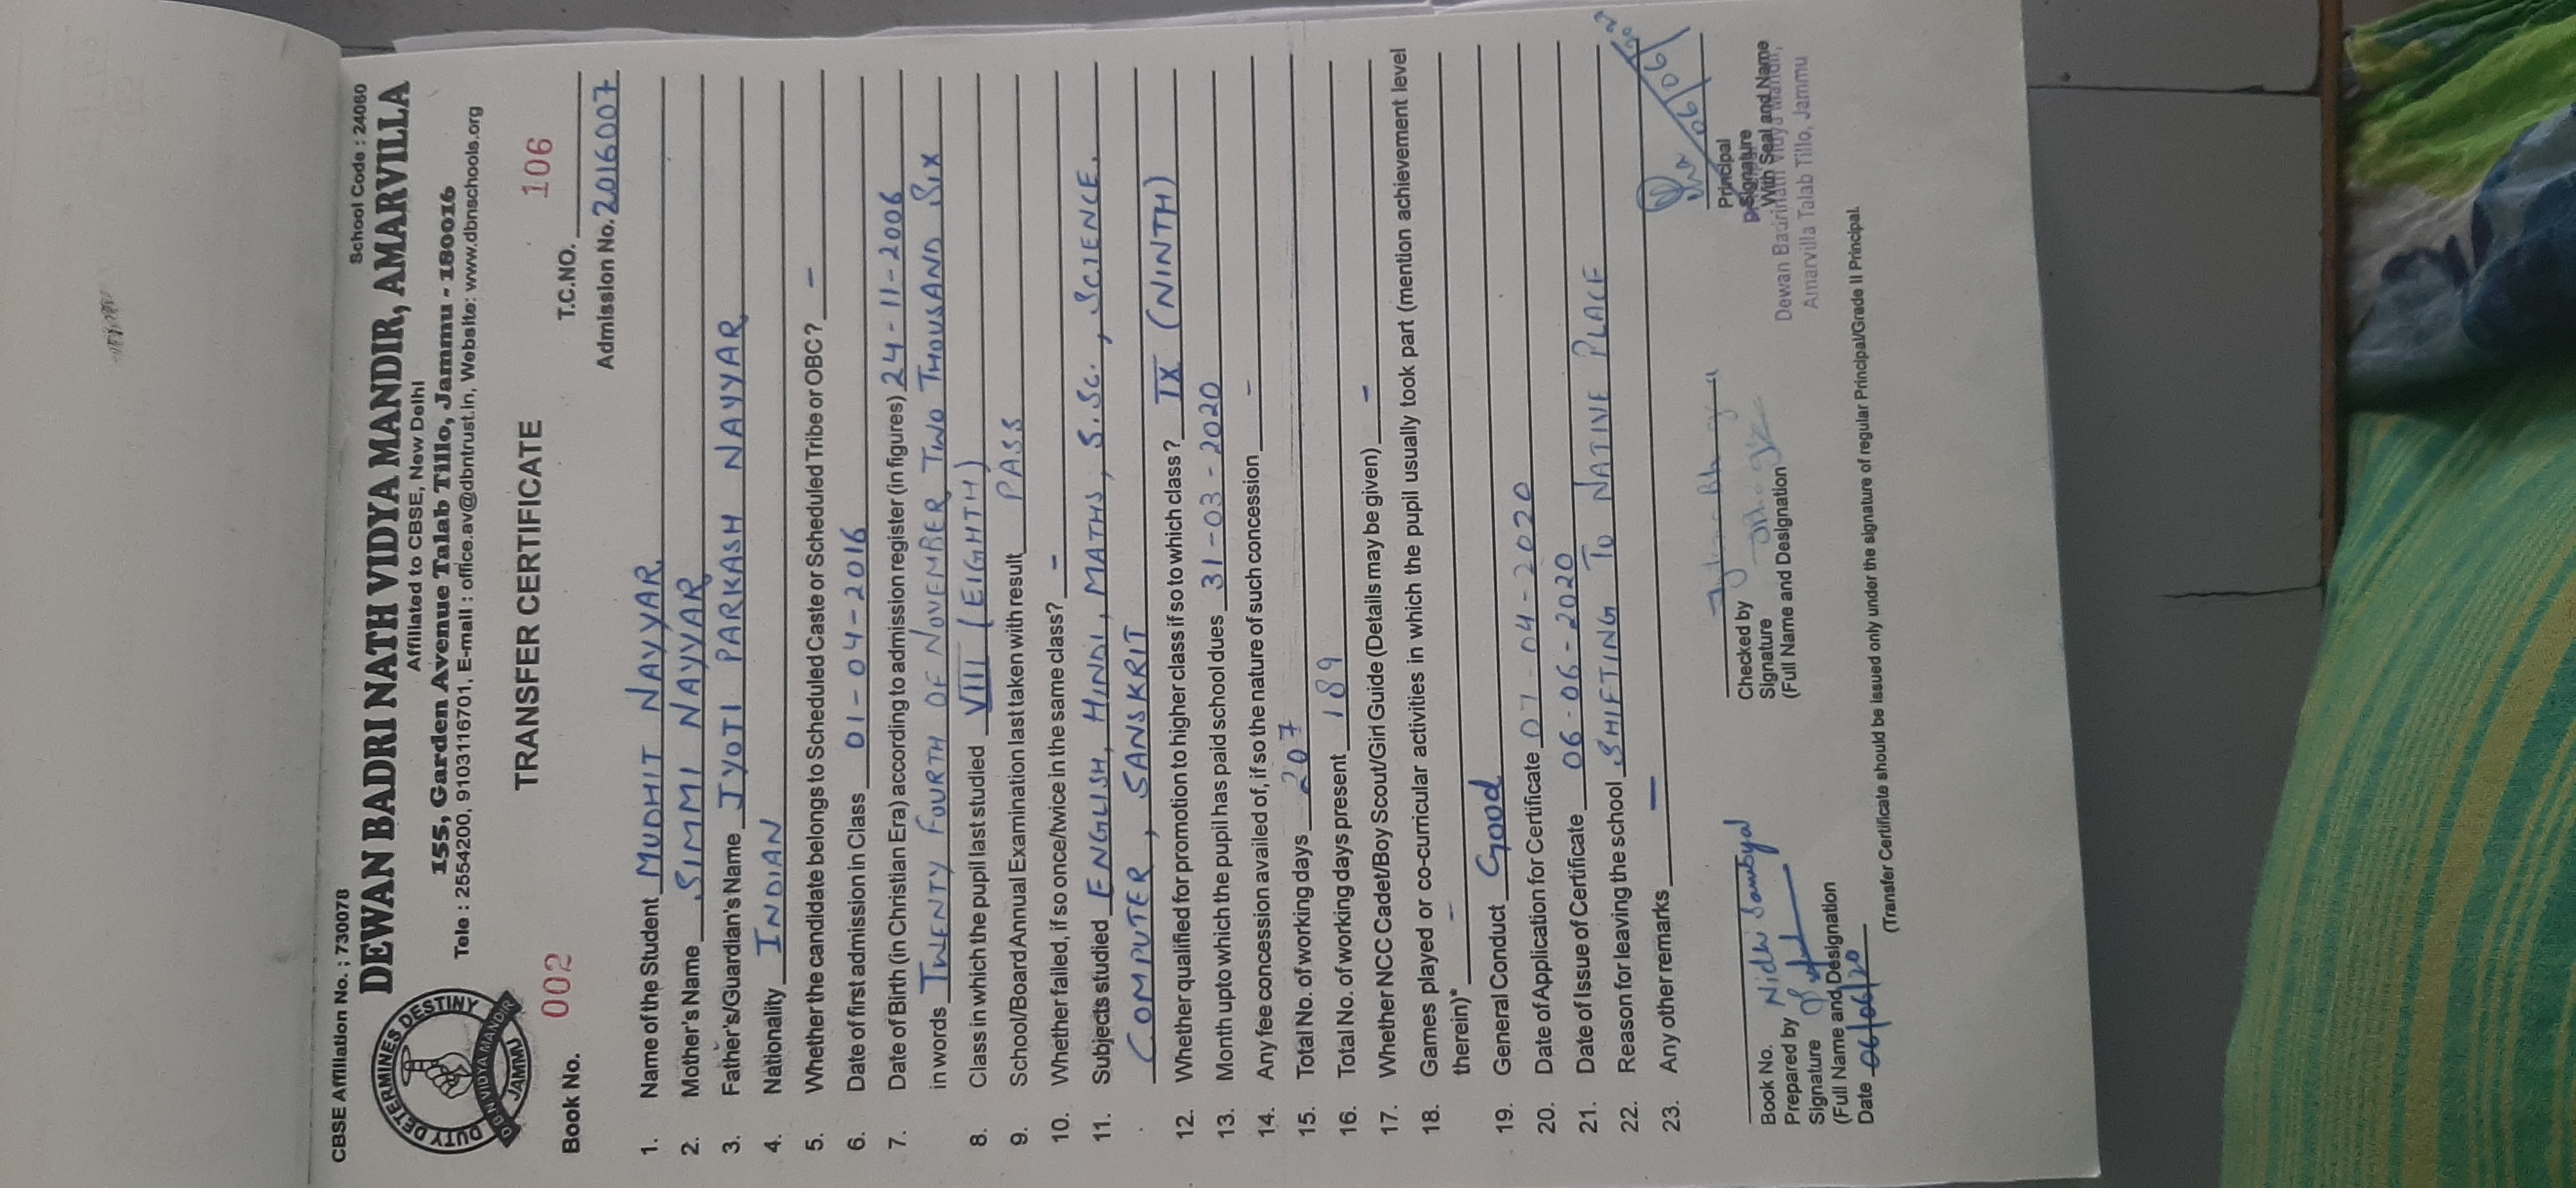 CBSE Affiliation No. ; 730078 School Code : 24060
DEWAN BADRI NATH VIDYA MANDIR, AMARVILLA
Affiliated to CBSE, New Delhi
155, Garden Avenue Talab Tillo, Jammu - 180016
Tele : 2554200, 9103116701, E-mail : office.av@dbntrust.in, Website: www.dbnschools.org
DUTY DETERMINES DESTINY
D B N VIDYA MANDIR
JAMMU
TRANSFER CERTIFICATE
Book No. 002 T.C.NO. 106
Admission No. 2016007
1. Name of the Student MUDHIT NAYYAR
2. Mother's Name SIMMI NAYYAR
3. Father's/Guardian's Name JYOTI PARKASH NAYYAR
4. Nationality INDIAN
5. Whether the candidate belongs to Scheduled Caste or Scheduled Tribe or OBC? -
6. Date of first admission in Class 01-04-2016
7. Date of Birth (in Christian Era) according to admission register (in figures) 24-11-2006
in words TWENTY FOURTH OF NOVEMBER TWO THOUSAND SIX
8. Class in which the pupil last studied VIII (EIGHTH)
9. School/Board Annual Examination last taken with result PASS
10. Whether failed, if so once/twice in the same class? -
11. Subjects studied ENGLISH, HINDI, MATHS, S.Sc., SCIENCE,
COMPUTER, SANSKRIT
12. Whether qualified for promotion to higher class if so to which class? IX (NINTH)
13. Month upto which the pupil has paid school dues 31-03-2020
14. Any fee concession availed of, if so the nature of such concession -
15. Total No. of working days 207
16. Total No. of working days present 189
17. Whether NCC Cadet/Boy Scout/Girl Guide (Details may be given) -
18. Games played or co-curricular activities in which the pupil usually took part (mention achievement level
therein)* -
19. General Conduct Good
20. Date of Application for Certificate 07-04-2020
21. Date of Issue of Certificate 06-06-2020
22. Reason for leaving the school SHIFTING TO NATIVE PLACE
23. Any other remarks -
Book No.
Prepared by Nidhi Sambyal
Signature
(Full Name and Designation
Date 06/06/20
Checked by
Signature
(Full Name and Designation)
Principal
Signature
With Seal and Name
Dewan Badrinath Vidya Mandir,
Amarvilla Talab Tillo, Jammu
(Transfer Certificate should be issued only under the signature of regular Principal/Grade II Principal.